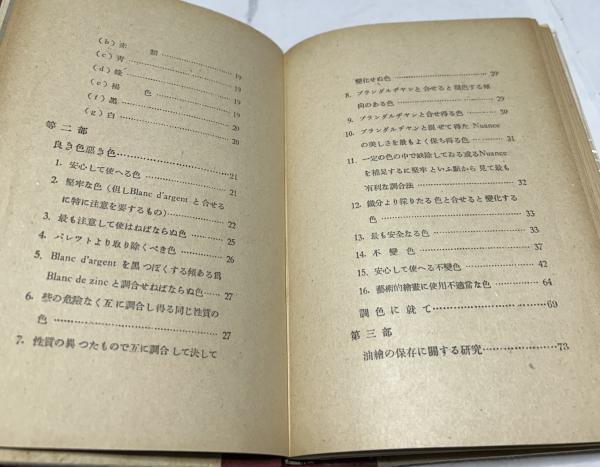 (b) 赤類 19
(c) 青 19
(d) 綠 19
(e) 褐色 19
(f) 黒 20
(g) 白 20
第二部
良き色惡き色 21
1. 安心して使へる色 21
2. 堅牢な色（但しBlanc d'argent と合せる
に特に注意を要するもの） 22
3. 最も注意して使はねばならぬ色 25
4. パレットより取り除くべき色 26
5. Blanc d'argent を黒つぽくする傾ある爲
Blanc de zinc と調合せねばならぬ色 27
6. 些の危險なく互に調合し得る同じ性質の
色 27
7. 性質の異つたもので互に調合して決して
變化せぬ色 29
8. ブランダルヂヤンと合せると褪色する傾
向のある色 29
9. ブランダルヂヤンと合せ得る色 30
10. ブランダルヂヤンと混ぜて得た Nuance
の美しさを最もよく保ち得る色 31
11. 一定の色の中で缺除してゐる或るNuance
を補足するに堅牢といふ點から見て最も
有利な調合法
12. 鐵分より採りたる色と合せると變化する
色 33
13. 最も安全なる色 33
14. 不變色 37
15. 安心して使へる不變色 42
16. 藝術的繪畫に使用不適當な色 64
調色に就て 69
第三部
油繪の保存に關する研究 73